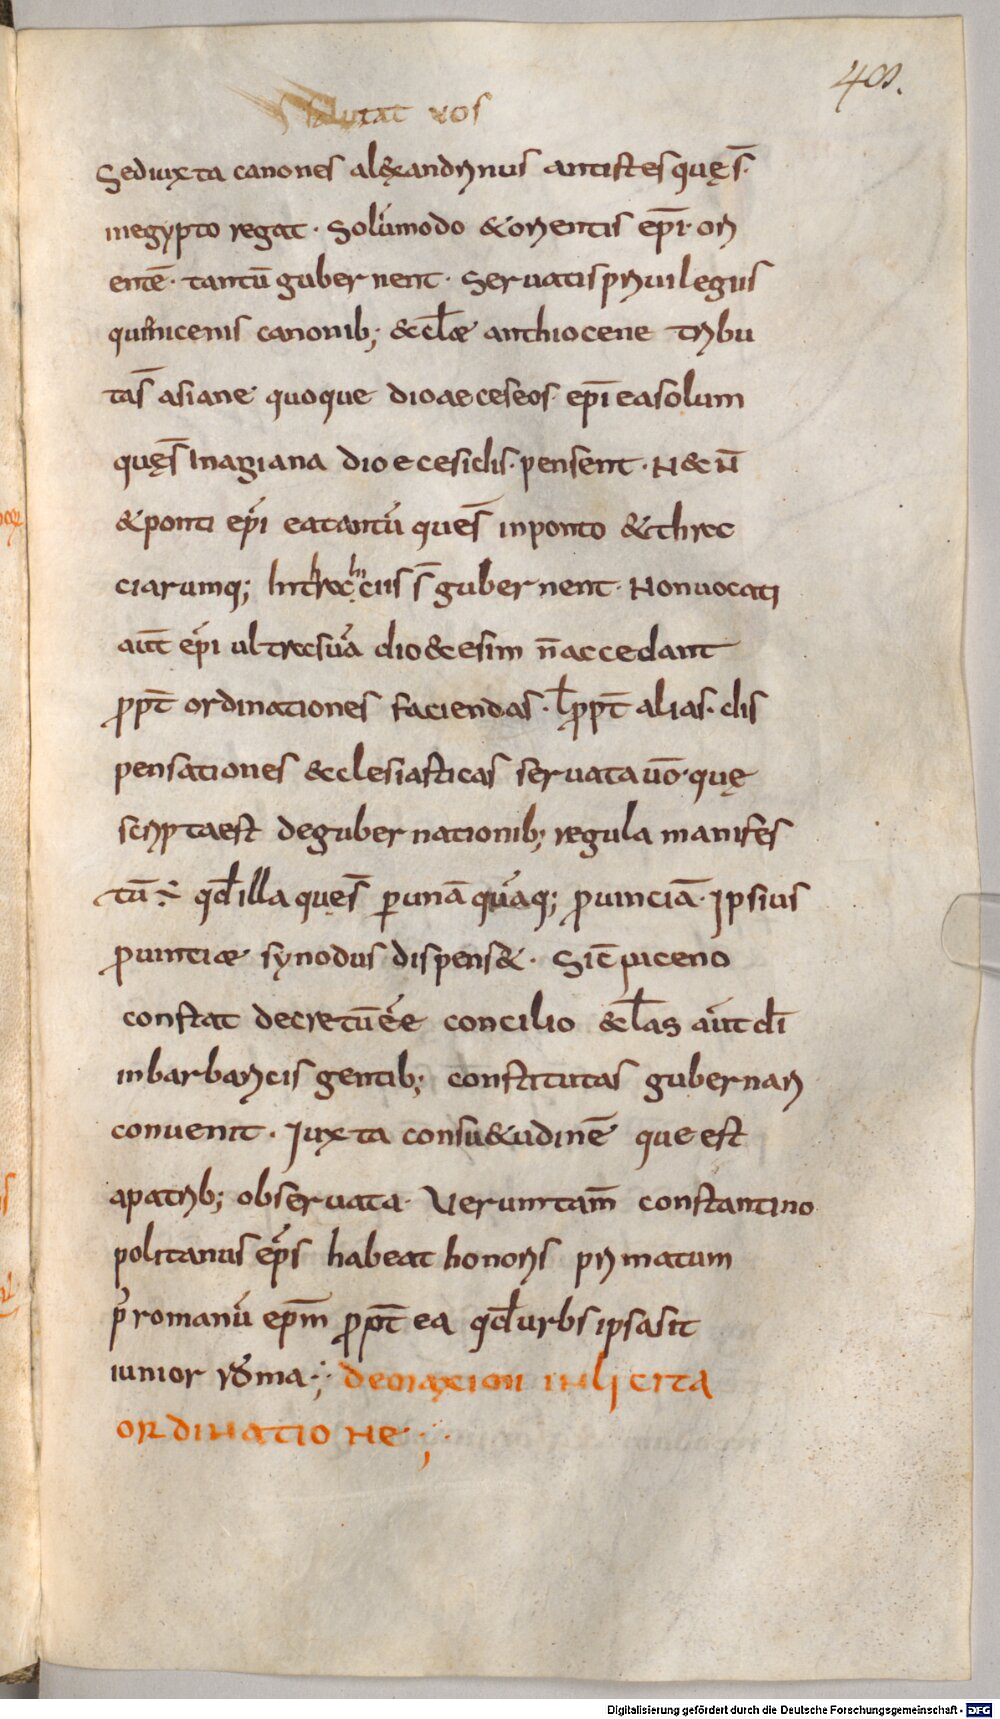 403.
salutat vos
Sed iuxta canones alexandrinus antistes quęs̄·
in egypto regat · Solūmodo & orientis ep̄i · ori
entē · tantū gubernent · Servatis privilegiis
qui nicenis canonib; & ecl̄ae anthiocene tribu
tas̄ asiane quoque dioaeceseos · ep̄i ea solum
quęs̄ In agiana dioecesi dis·pensent · N& ū
& ponti ep̄i ea tantū ques̄ in ponto & threc
ciarumq; In threcciis s̄ gubernent · Non uocati
aūt ep̄i ultrec suā dio&esim n̄ accedant
ꝓpt̄ ordinationes faciendas · ł ꝓpt̄ alias · dis
pensationes &clesiasticas servata uō · quę
scripta est de gubernationib; regula manifes
tū ÷ qđ illa quęs̄ ꝑ unā quāq; ꝓuinciā · Ipsius
ꝓuintiae synodus dispens& · Sic̄ niceno
constat decretū ēe concilio &cl̄as aūt dī
in barbaricis gentib; constitutas gubernari
convenit · Iuxta consu&udinē que est
a patrib; observata · Veruntam̄ constantino
politanus ep̄s habeat honoris primatum
p̄ romanū ep̄m ꝓpt̄ ea qđ urbs ipsa sit
iunior roma ·;· de maximi inlicita
ordinatione ·;·
Digitalisierung gefördert durch die Deutsche Forschungsgemeinschaft - DFG